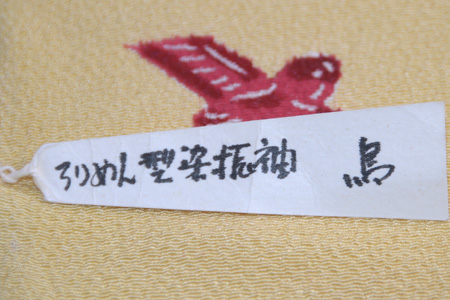 ろりめん型染振袖 鳥